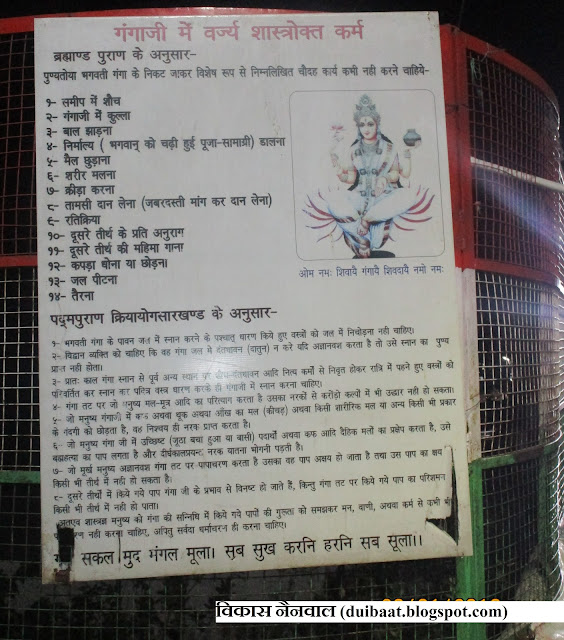 गंगाजी में वर्ज्य शास्त्रोक्त कर्म
ब्रह्माण्ड पुराण के अनुसार-
पुण्यतोया भगवती गंगा के निकट जाकर विशेष रूप से निम्नलिखित चौदह कार्य कभी नही करने चाहिये-
१- समीप में शौच
२- गंगाजी में कुल्ला
३- बाल झाड़ना
४- निर्माल्य ( भगवान् को चढ़ी हुई पूजा-सामाग्री) डालना
५- मैल छुड़ाना
६- शरीर मलना
७- क्रीड़ा करना
८- तामसी दान लेना (जबरदस्ती मांग कर दान लेना)
९- रतिक्रिया
१०- दूसरे तीर्थ के प्रति अनुराग
११- दूसरे तीर्थ की महिमा गाना
१२- कपड़ा धोना या छोड़ना
१३- जल पीटना
१४- तैरना
ओम नमः शिवायै गंगायै शिवदायै नमो नमः
पद्मपुराण क्रियायोगसारखण्ड के अनुसार-
१- भगवती गंगा के पावन जल में स्नान करने के पश्चात् धारण किये हुए वस्त्रों को जल में निचोड़ना नही चाहिए।
२- विद्वान व्यक्ति को चाहिए कि वह गंगा जल में दंतधावन (दातुन) न करे यदि अज्ञानवश करता है तो उसे स्नान का पुण्य
प्राप्त नही होता।
३- प्रातः काल गंगा स्नान से पूर्व अन्य स्थान पर आदि नित्य कर्मो से निवृत होकर रात्रि में पहने हुए वस्त्रों को
परिवर्तित कर स्नान कर पवित्र वस्त्र धारण करके ही गंगाजी में स्नान करना चाहिए।
४- गंगा तट पर जो मनुष्य मल-मूत्र आदि का परित्याग करता है उसका नरकों से करोड़ो कल्पों में भी उद्धार नही हो सकता।
५- जो मनुष्य गंगाजी में कफ अथवा थूक अथवा आँख का मल (कीचड़) अथवा किसी शारीरिक मल या अन्य किसी भी प्रकार
के गंदगी को छोड़ता है, वह निश्चय ही नरक प्राप्त करता है।
६- जो मनुष्य गंगा जी में उच्छिष्ट (जूठा बचा हुआ या बासी) पदार्थो अथवा कफ आदि दैहिक मलों का प्रक्षेप करता है, उसे
ब्रह्महत्या का पाप लगता है और दीर्घकालप्रयन्त; नरक यातना भोगनी पड़ती है।
७- जो मुर्ख मनुष्य अज्ञानवश गंगा तट पर-पापाचरण करता है उसका वह पाप अक्षय हो जाता है तथा उस पाप का क्षय
किसी भी तीर्थ में नही हो सकता है।
८- दूसरे तीर्थों में किये गये पाप गंगा जी के प्रभाव से विनष्ट हो जाते हैं, किन्तु गंगा तट पर किये गये पाप का परिशमन
किसी भी तीर्थ में नही हो पाता।
अतएव शास्त्रज्ञ मनुष्य को गंगा की सन्निधि में किये गये पापों की गुरूता को समझकर मन, वाणी, अथवा कर्म से कभी भी
नही करना चाहिए, अपितु सर्वदा धर्माचरण ही करना चाहिए।
सकल मुद मंगल मूला। सब सुख करनि हरनि सब सूला।।
विकास नैनवाल (duibaat.blogspot.com)